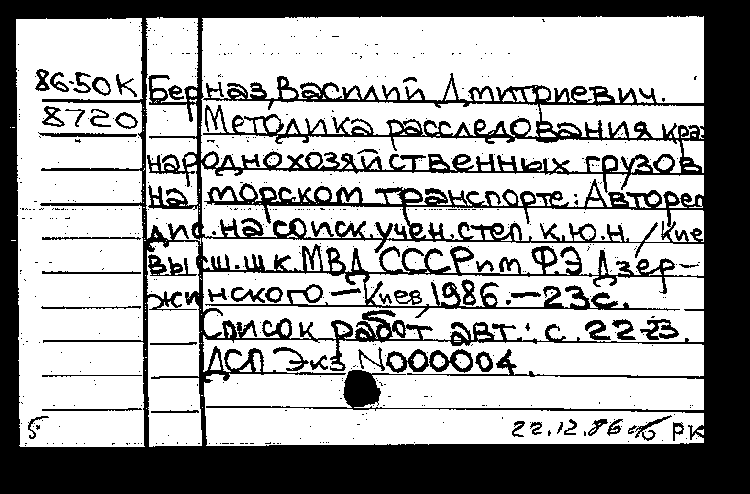 86-50К Берназ, Василий Дмитриевич.
8720 Методика расследования краж
народнохозяйственных грузов
на морском транспорте: Авторел
дис. на соиск. учен. степ. к.ю.н. / Кие
высш. шк. МВД СССР им. Ф.Э. Дзер-
жинского. — Киев, 1986. — 23с.
Список работ авт.: с. 22-23.
ДСП. Экз. N000004.
22.12.86 РК